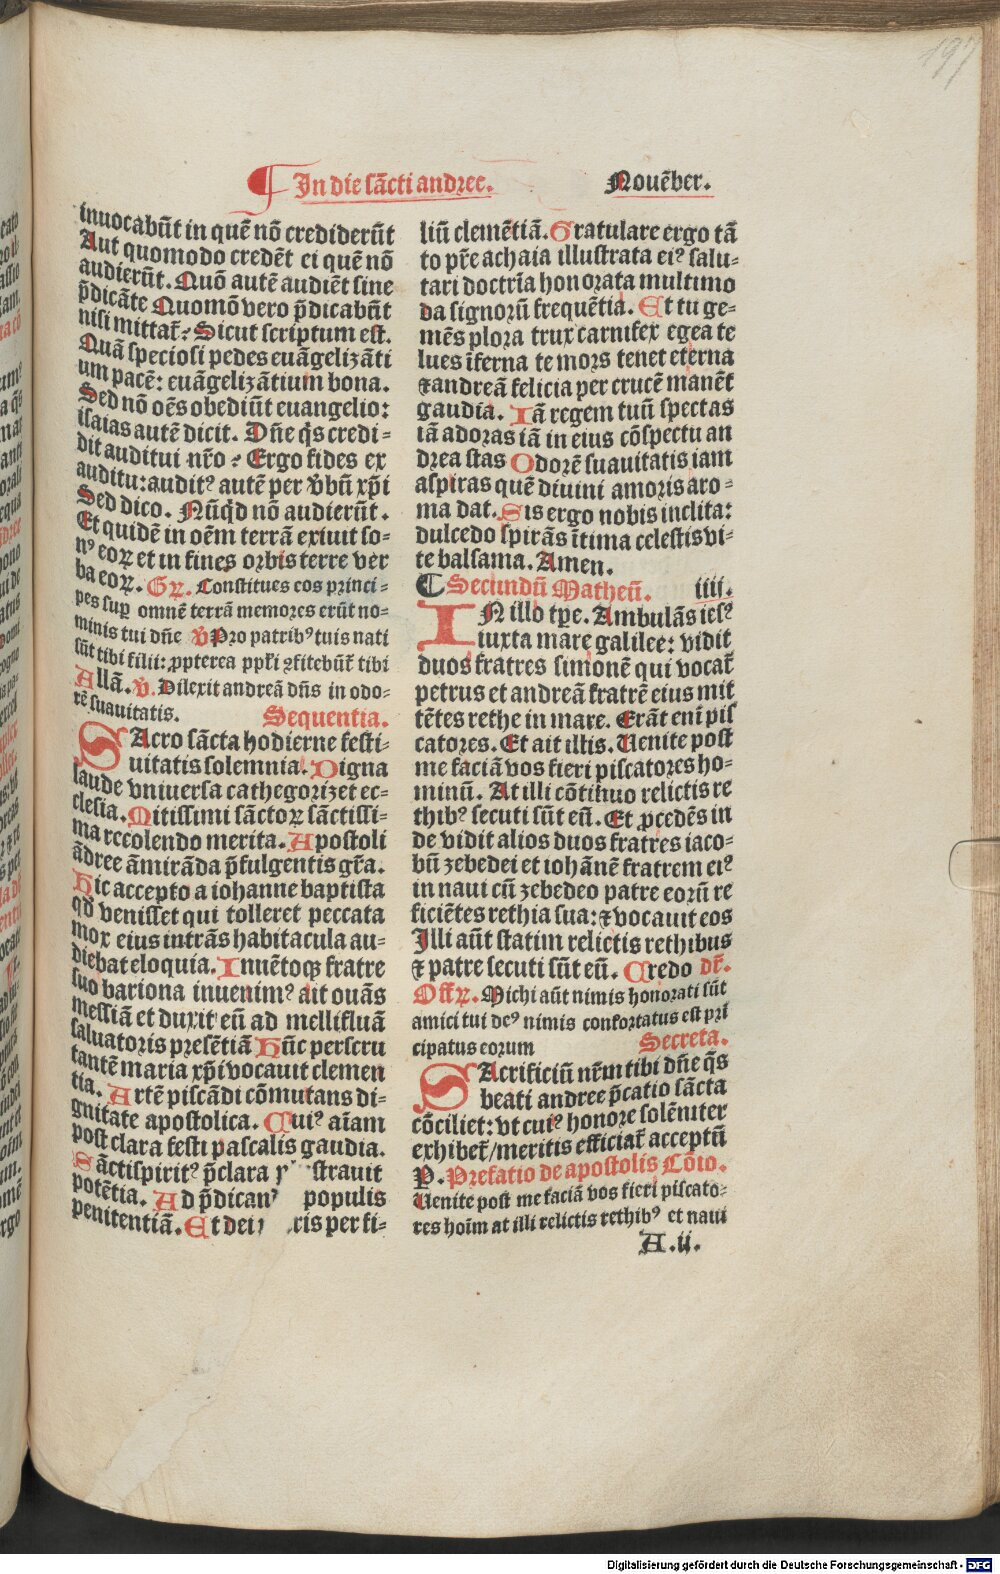 197
In die sācti andree. Nouēber.
inuocabūt in quē nō crediderūt
Aut quomodo credēt ei quē nō
audierūt. Quō autē audiēt sine
p̄dicāte Quomō vero p̄dicabūt
nisi mittat᷑: Sicut scriptum est.
Quā speciosi pedes euāgelizāti
um pacē: euāgelizātium bona.
Sed nō oēs obediūt euangelio:
isaias autē dicit. Dn̄e q̄s credi-
dit auditui nr̄o: Ergo fides ex
auditu: auditꝰ autē per v̄bū xp̄i
Sed dico. Nūq̄d nō audierūt.
Et quidē in oēm terrā exiuit so-
nꝰ eoꝝ et in fines orbis terre ver
ba eoꝝ. Gꝝ. Constitues eos princi-
pes suꝑ omnē terrā memores erūt no-
minis tui dn̄e ℣ Pro patribꝰ tuis nati
sūt tibi filii: ꝓpterea ppl̄i ꝯfitebūt᷑ tibi
Allā. ℣. Dilexit andreā dn̄s in odo-
rē suauitatis. Sequentia.
SAcro sācta hodierne festi-
uitatis solemnia. Digna
laude vniuersa cathegorizet ec-
clesia. Mitissimi sāctoꝝ sāctissi-
ma rceolendo merita. Apostoli
ādree āmirāda p̄fulgentis gr̄a.
Hic accepto a iohanne baptista
qd̄ venisset qui tolleret peccata
mox eius intrās habitacula au-
diebat eloquia. Inuētoqꝫ fratre
suo bariona inuenimꝰ ait ouās
messiā et duxit eū ad mellifluā
saluatoris presētiā Hūc perscru
tantē maria xp̄i vocauit clemen
tia. Artē piscādi cōmutans di-
gnitate apostolica. Cuiꝰ aīam
post clara festi pascalis gaudia.
Sāctispiritꝰ p̄clara strauit
potētia. Ad p̄dican populis
penitentiā. Et dei ris per fi-
liū clemētiā. Gratulare ergo tā
to pr̄e achaia illustrata eiꝰ salu-
tari doctrīa honorata multimo
da signorū frequētia. Et tu ge-
mēs plora trux carnifex egea te
lues īferna te mors tenet eterna
⁊ andreā felicia per crucē manēt
gaudia. Iā regem tuū spectas
iā adoras iā in eius cōspectu an
drea stas Odorē suauitatis iam
aspiras quē diuini amoris aro-
ma dat. Sis ergo nobis inclita:
dulcedo spirās ītima celestis vi-
te balsama. Amen.
Secundū Matheū. iiii.
IN illo tꝑe. Ambulās iesꝰ
iuxta mare galilee: vidit
duos fratres simonē qui vocat᷑
petrus et andreā fratrē eius mit
tētes rethe in mare. Erāt eni᷑ pis
catores. Et ait illis. Uenite post
me faciā vos fieri piscatores ho-
minū. At illi cōtinuo relictis re
thibꝰ secuti sūt eū. Et ꝓcedēs in
de vidit alios duos fratres iaco-
bū zebedei et iohānē fratrem eiꝰ
in naui cū zebedeo patre eorū re
ficiētes rethia sua: ⁊ vocauit eos
Illi aūt statim relictis rethibus
⁊ patre secuti sūt eū. Credo dr̄.
Offꝝ. Michi aūt nimis honorati sūt
amici tui deꝰ nimis confortatus est pri
cipatus eorum Secreta.
SAcrificiū nr̄m tibi dn̄e q̄s
beati andree p̄catio sācta
cōciliet: vt cuiꝰ honore solēniter
exhibet᷑/ meritis efficiat᷑ acceptū
P. Prefatio de apostolis Cōio.
Uenite post me faciā vos fieri piscato-
res hoīm at illi relictis rethibꝰ et naui
A.ii.
Digitalisierung gefördert durch die Deutsche Forschungsgemeinschaft - DFG